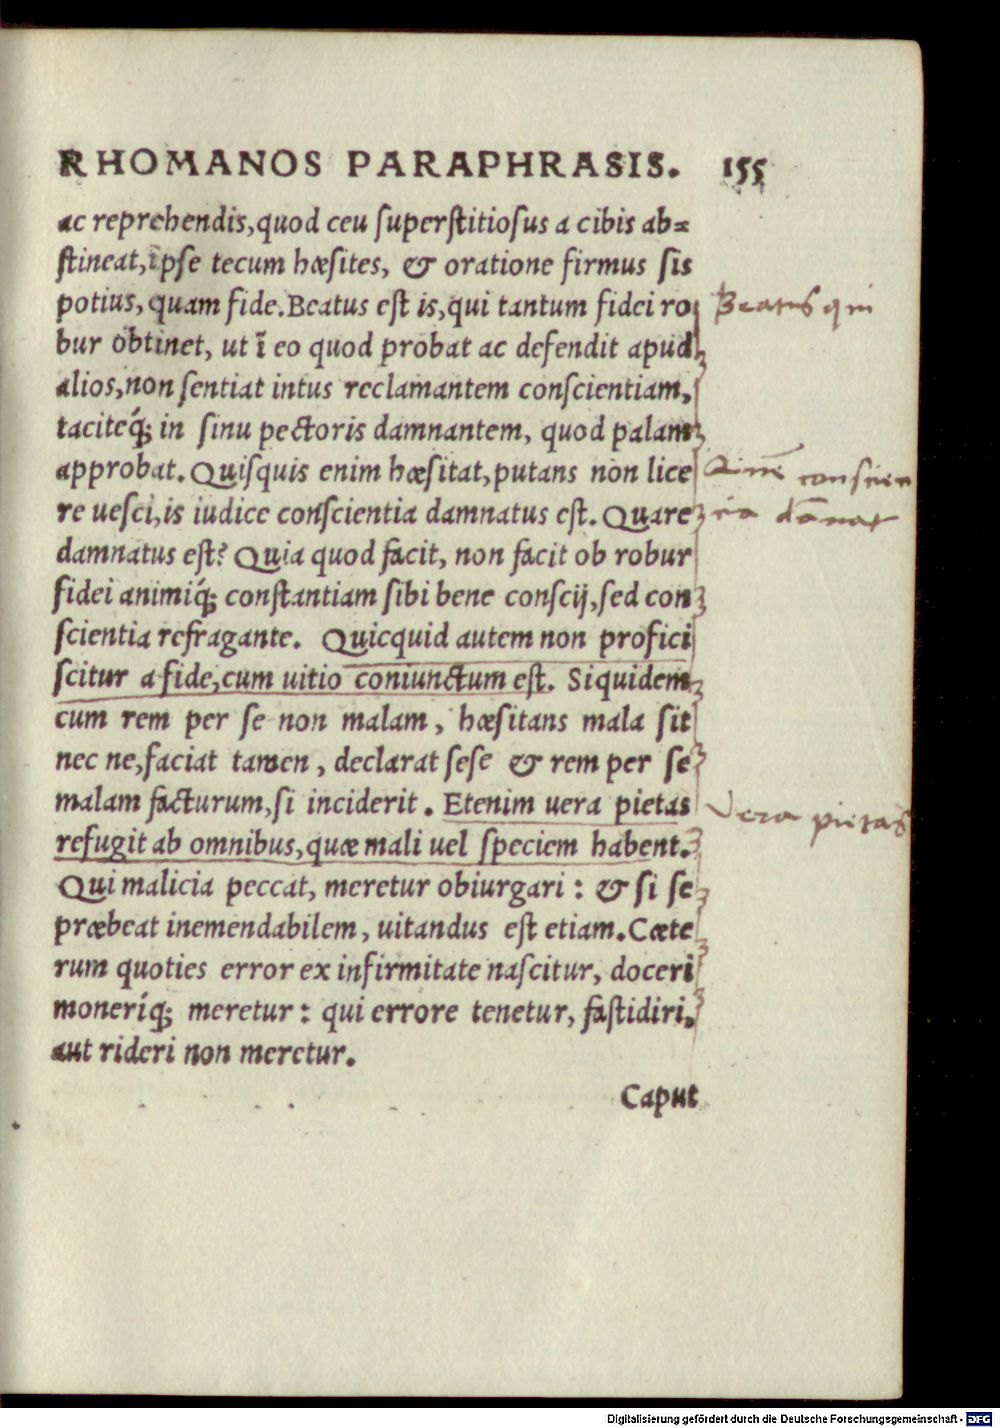 RHOMANOS PARAPHRASIS. 155
ac reprehendis,quod ceu ſuperſtitioſus a cibis ab=
ſtineat,ipſe tecum hæſites, & oratione firmus ſis
potius, quam fide.Beatus eſt is,qui tantum fidei ro
Beatus qui
bur obtinet, ut ī eo quod probat ac defendit apud
alios,non ſentiat intus reclamantem conſcientiam,
taciteq́; in ſinu pectoris damnantem, quod palam
approbat. Quiſquis enim hæſitat,putans non lice
conscien
re ueſci,is iudice conſcientia damnatus eſt. Quare
tia dānat
damnatus eſt? Quia quod facit, non facit ob robur
fidei animiq́; conſtantiam ſibi bene conſcij,ſed con
ſcientia refragante. Quicquid autem non profici
ſcitur a fide,cum uitio coniunctum eſt. Siquidem
cum rem per ſe non malam, hæſitans mala ſit
nec ne,faciat tamen, declarat ſeſe & rem per ſe
malam facturum,ſi inciderit. Etenim uera pietas
Vera pietas
refugit ab omnibus,quæ mali uel ſpeciem habent.
Qui malicia peccat, meretur obiurgari : & ſi ſe
præbeat inemendabilem, uitandus eſt etiam.Cæte
rum quoties error ex infirmitate naſcitur, doceri
moneríq; meretur : qui errore tenetur, faſtidiri,
aut rideri non meretur.
Caput
Digitalisierung gefördert durch die Deutsche Forschungsgemeinschaft - DFG